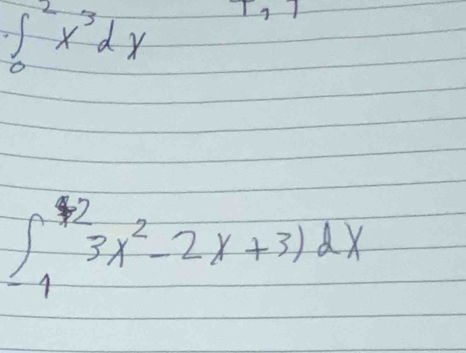 ∫₀² x³ dx
∫₋₁² 3x² - 2x + 3) dx